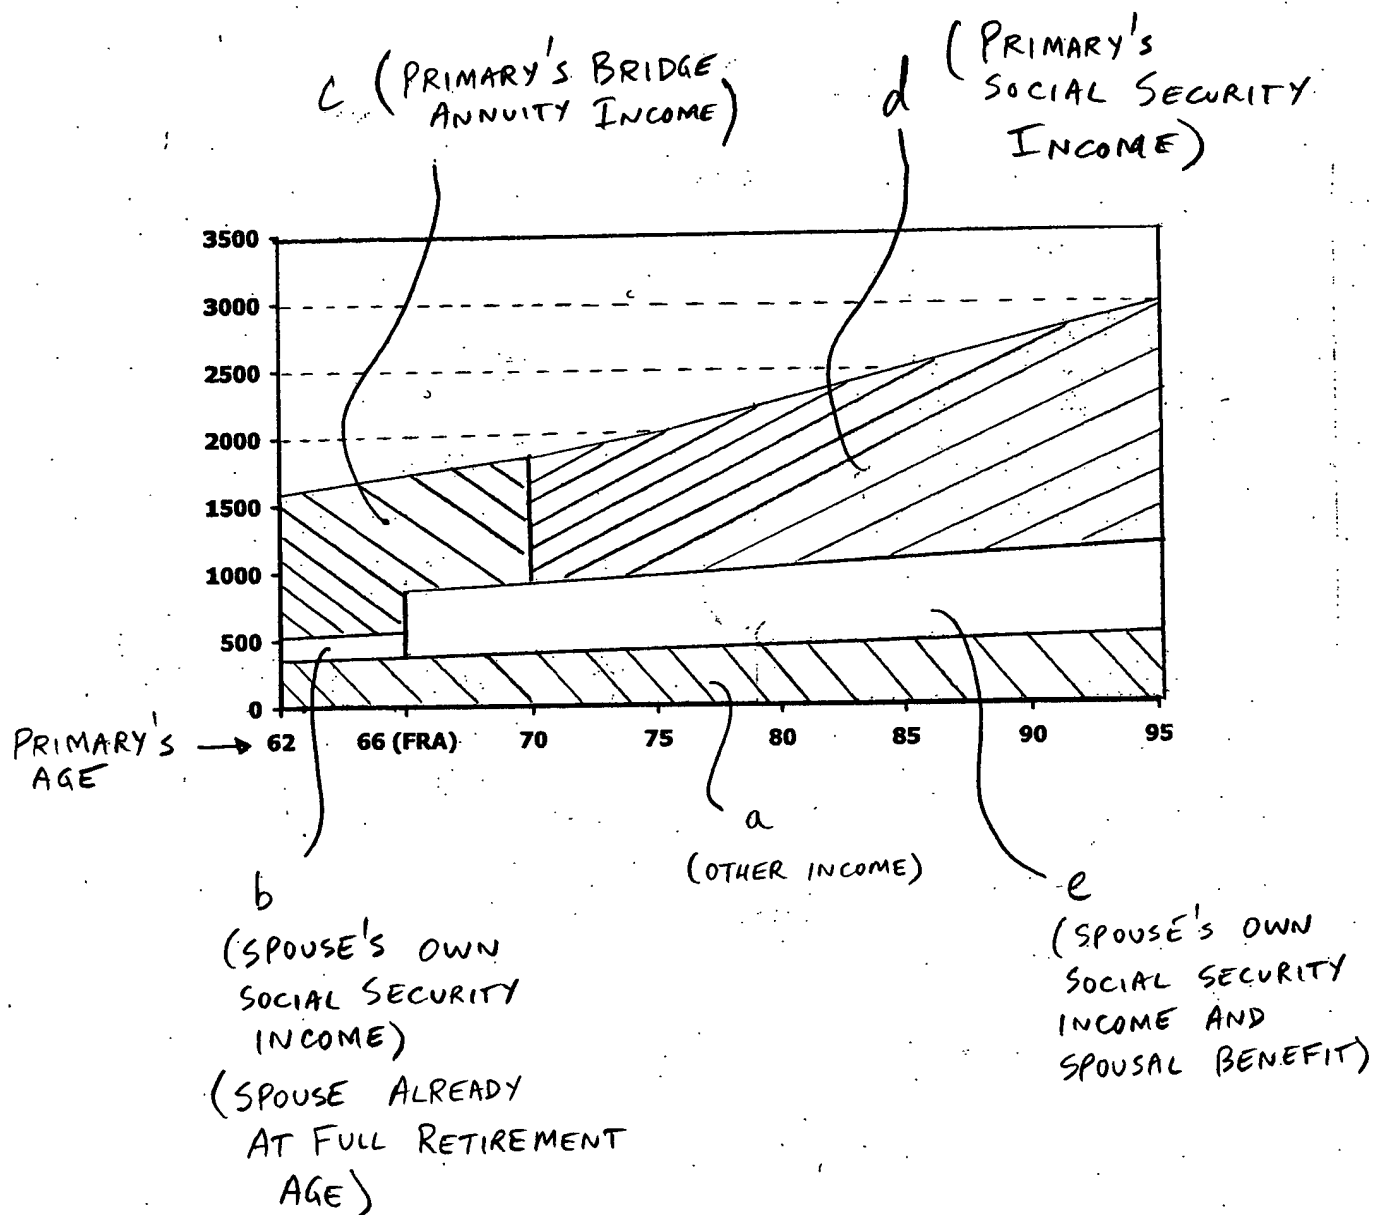 c (PRIMARY'S BRIDGE
ANNUITY INCOME)
d (PRIMARY'S
SOCIAL SECURITY
INCOME)
3500
3000
2500
2000
1500
1000
500
0
PRIMARY'S → 62 66 (FRA) 70 75 80 85 90 95
AGE
a
(OTHER INCOME)
b
(SPOUSE'S OWN
SOCIAL SECURITY
INCOME)
(SPOUSE ALREADY
AT FULL RETIREMENT
AGE)
e
(SPOUSE'S OWN
SOCIAL SECURITY
INCOME AND
SPOUSAL BENEFIT)